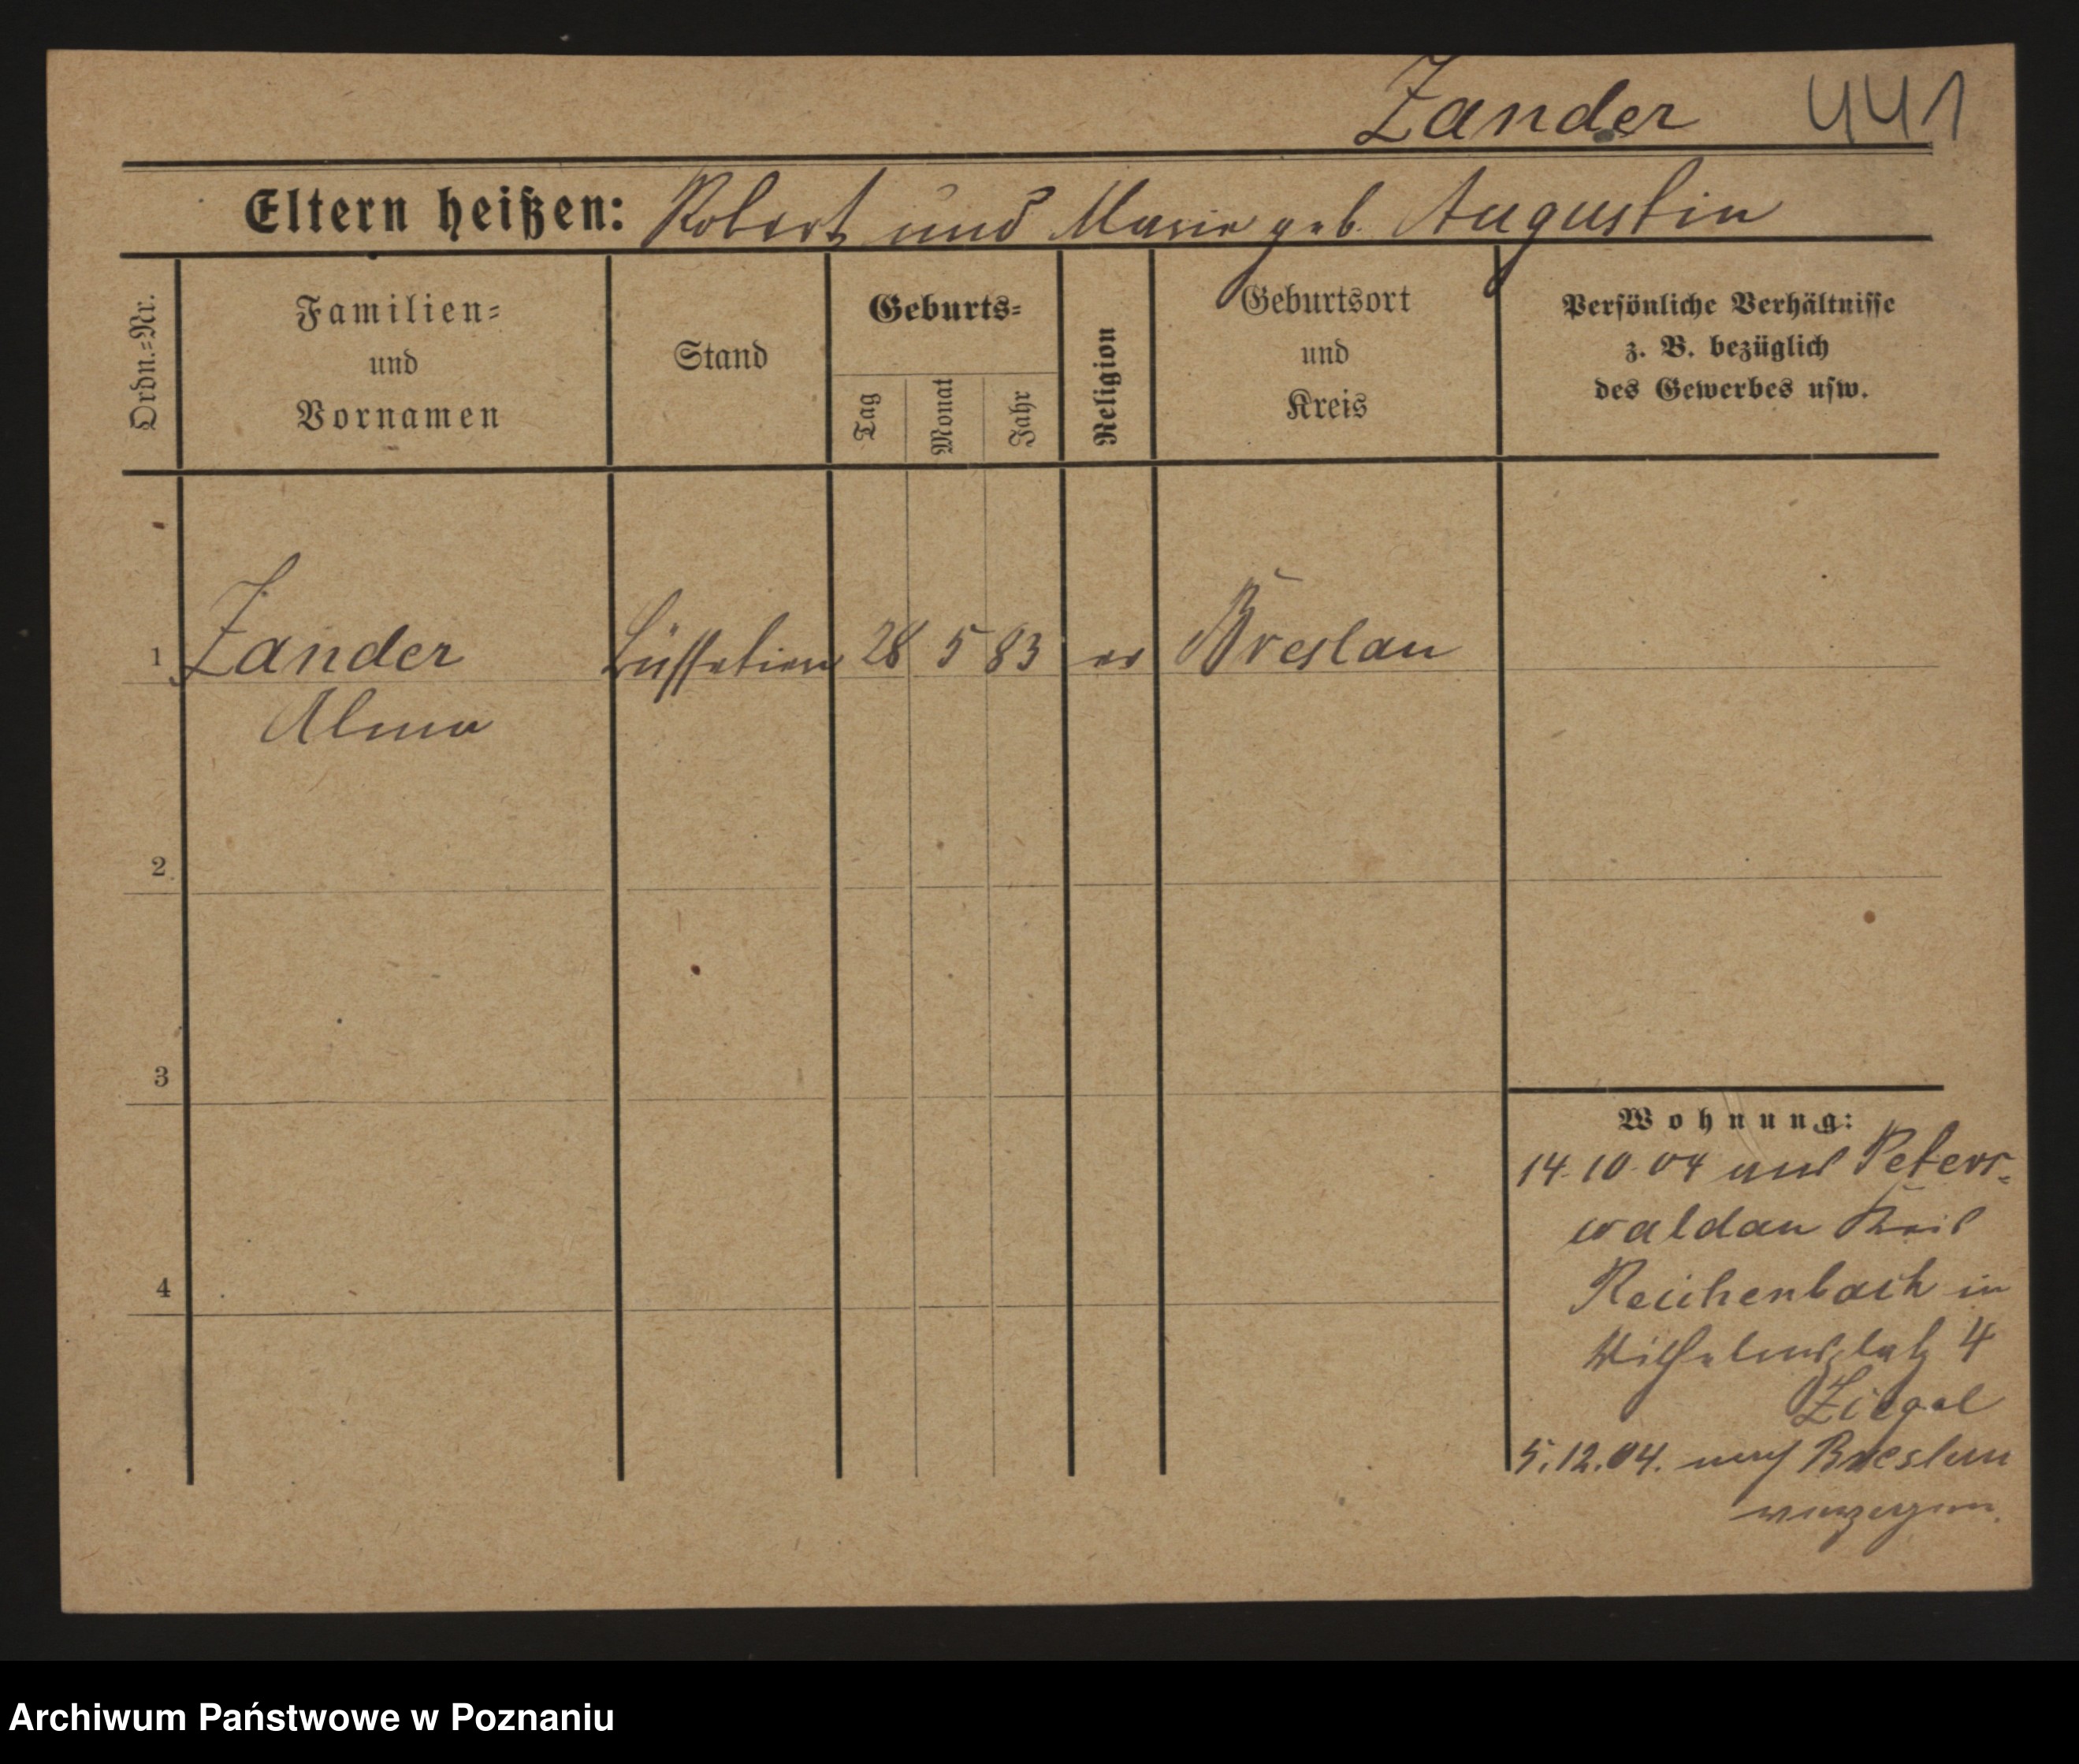 Zander 441
Eltern heißen: Robert und Marie geb. Augustin
Ordn.=Nr.
Familien=
und
Vornamen
Stand
Geburts=
Tag
Monat
Jahr
Religion
Geburtsort
und
Kreis
Persönliche Verhältnisse
z. B. bezüglich
des Gewerbes usw.
1 Zander Büffetiere 28 5 83 ev Breslau
Alma
2
3
4
Wohnung:
14.10.04 aus Peters-
waldau Kreis
Reichenbach in
Wilhelmsplatz 4
Ziegel
5.12.04. nach Breslau
verzogen.
Archiwum Państwowe w Poznaniu